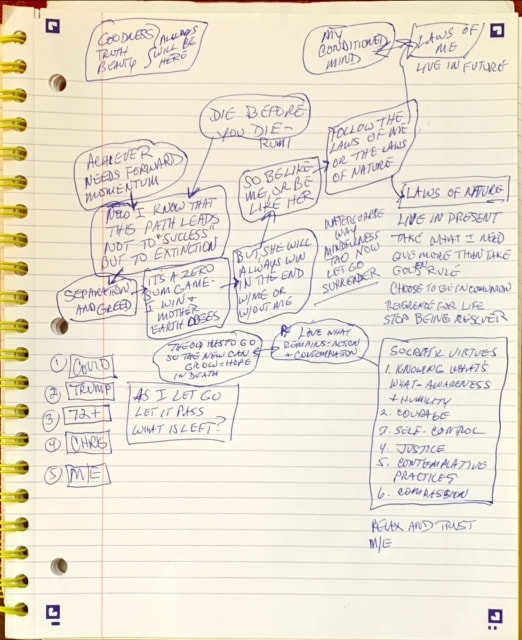 GOODNESS
TRUTH
BEAUTY
ALWAYS
WILL BE
HERE
MY
CONDITIONED
MIND
LAWS OF
ME
LIVE IN FUTURE
DIE BEFORE
YOU DIE-
RUMI
ACHIEVER
NEEDS FORWARD
MOMENTUM
NOW I KNOW THAT
THIS PATH LEADS
NOT TO "SUCCESS"
BUT TO EXTINCTION
SEPARATION
AND GREED
ITS A ZERO
SUM GAME-
I WIN &
MOTHER
EARTH LOSES
BUT, SHE WILL
ALWAYS WIN
IN THE END
W/ME OR
W/OUT ME
SO BE LIKE
ME, OR BE
LIKE HER
FOLLOW THE
LAWS OF ME
OR THE LAWS
OF NATURE
LAWS OF NATURE
LIVE IN PRESENT
TAKE WHAT I NEED
GIVE MORE THAN TAKE
GOLDEN RULE
CHOOSE TO BE IN COMMUNION
REVERENCE FOR LIFE
STOP BEING RESOLVER
WAY
MINDFULNESS
TAO NOW
LET GO
SURRENDER
THE OLD HAS TO GO
SO THE NEW CAN
GROW = HOPE
IN DEATH
LOVE WHAT
REMAINS = ACTION
+ CONTEMPLATION
SOCRATIC VIRTUES
1. KNOWING WHAT'S
WHAT - AWARENESS
+ HUMILITY
2. COURAGE
3. SELF-CONTROL
4. JUSTICE
5. CONTEMPLATIVE
PRACTICES
6. COMPASSION
RELAX AND TRUST
M/E
1 COVID
2 TRUMP
3 72+
4 CHRG
5 M/E
AS I LET GO
LET IT PASS
WHAT IS LEFT?